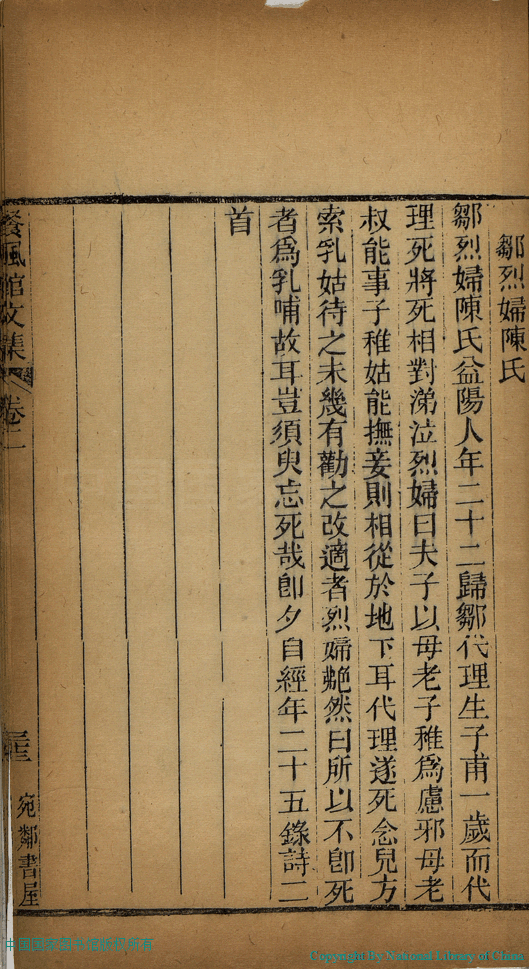 鄒烈婦陳氏
鄒烈婦陳氏益陽人年二十二歸鄒代理生子甫一歲而代
理死將死相對涕泣烈婦曰夫子以母老子稚爲慮邪母老
叔能事子稚姑能撫妾則相從於地下耳代理遂死念兒方
索乳姑待之未幾有勸之改適者烈婦艴然曰所以不卽死
者爲乳哺故耳豈須臾忘死哉卽夕自經年二十五錄詩二
首
餐楓館文集 卷二
宛鄰書屋
中国国家图书馆版权所有
Copyright By National Library of China